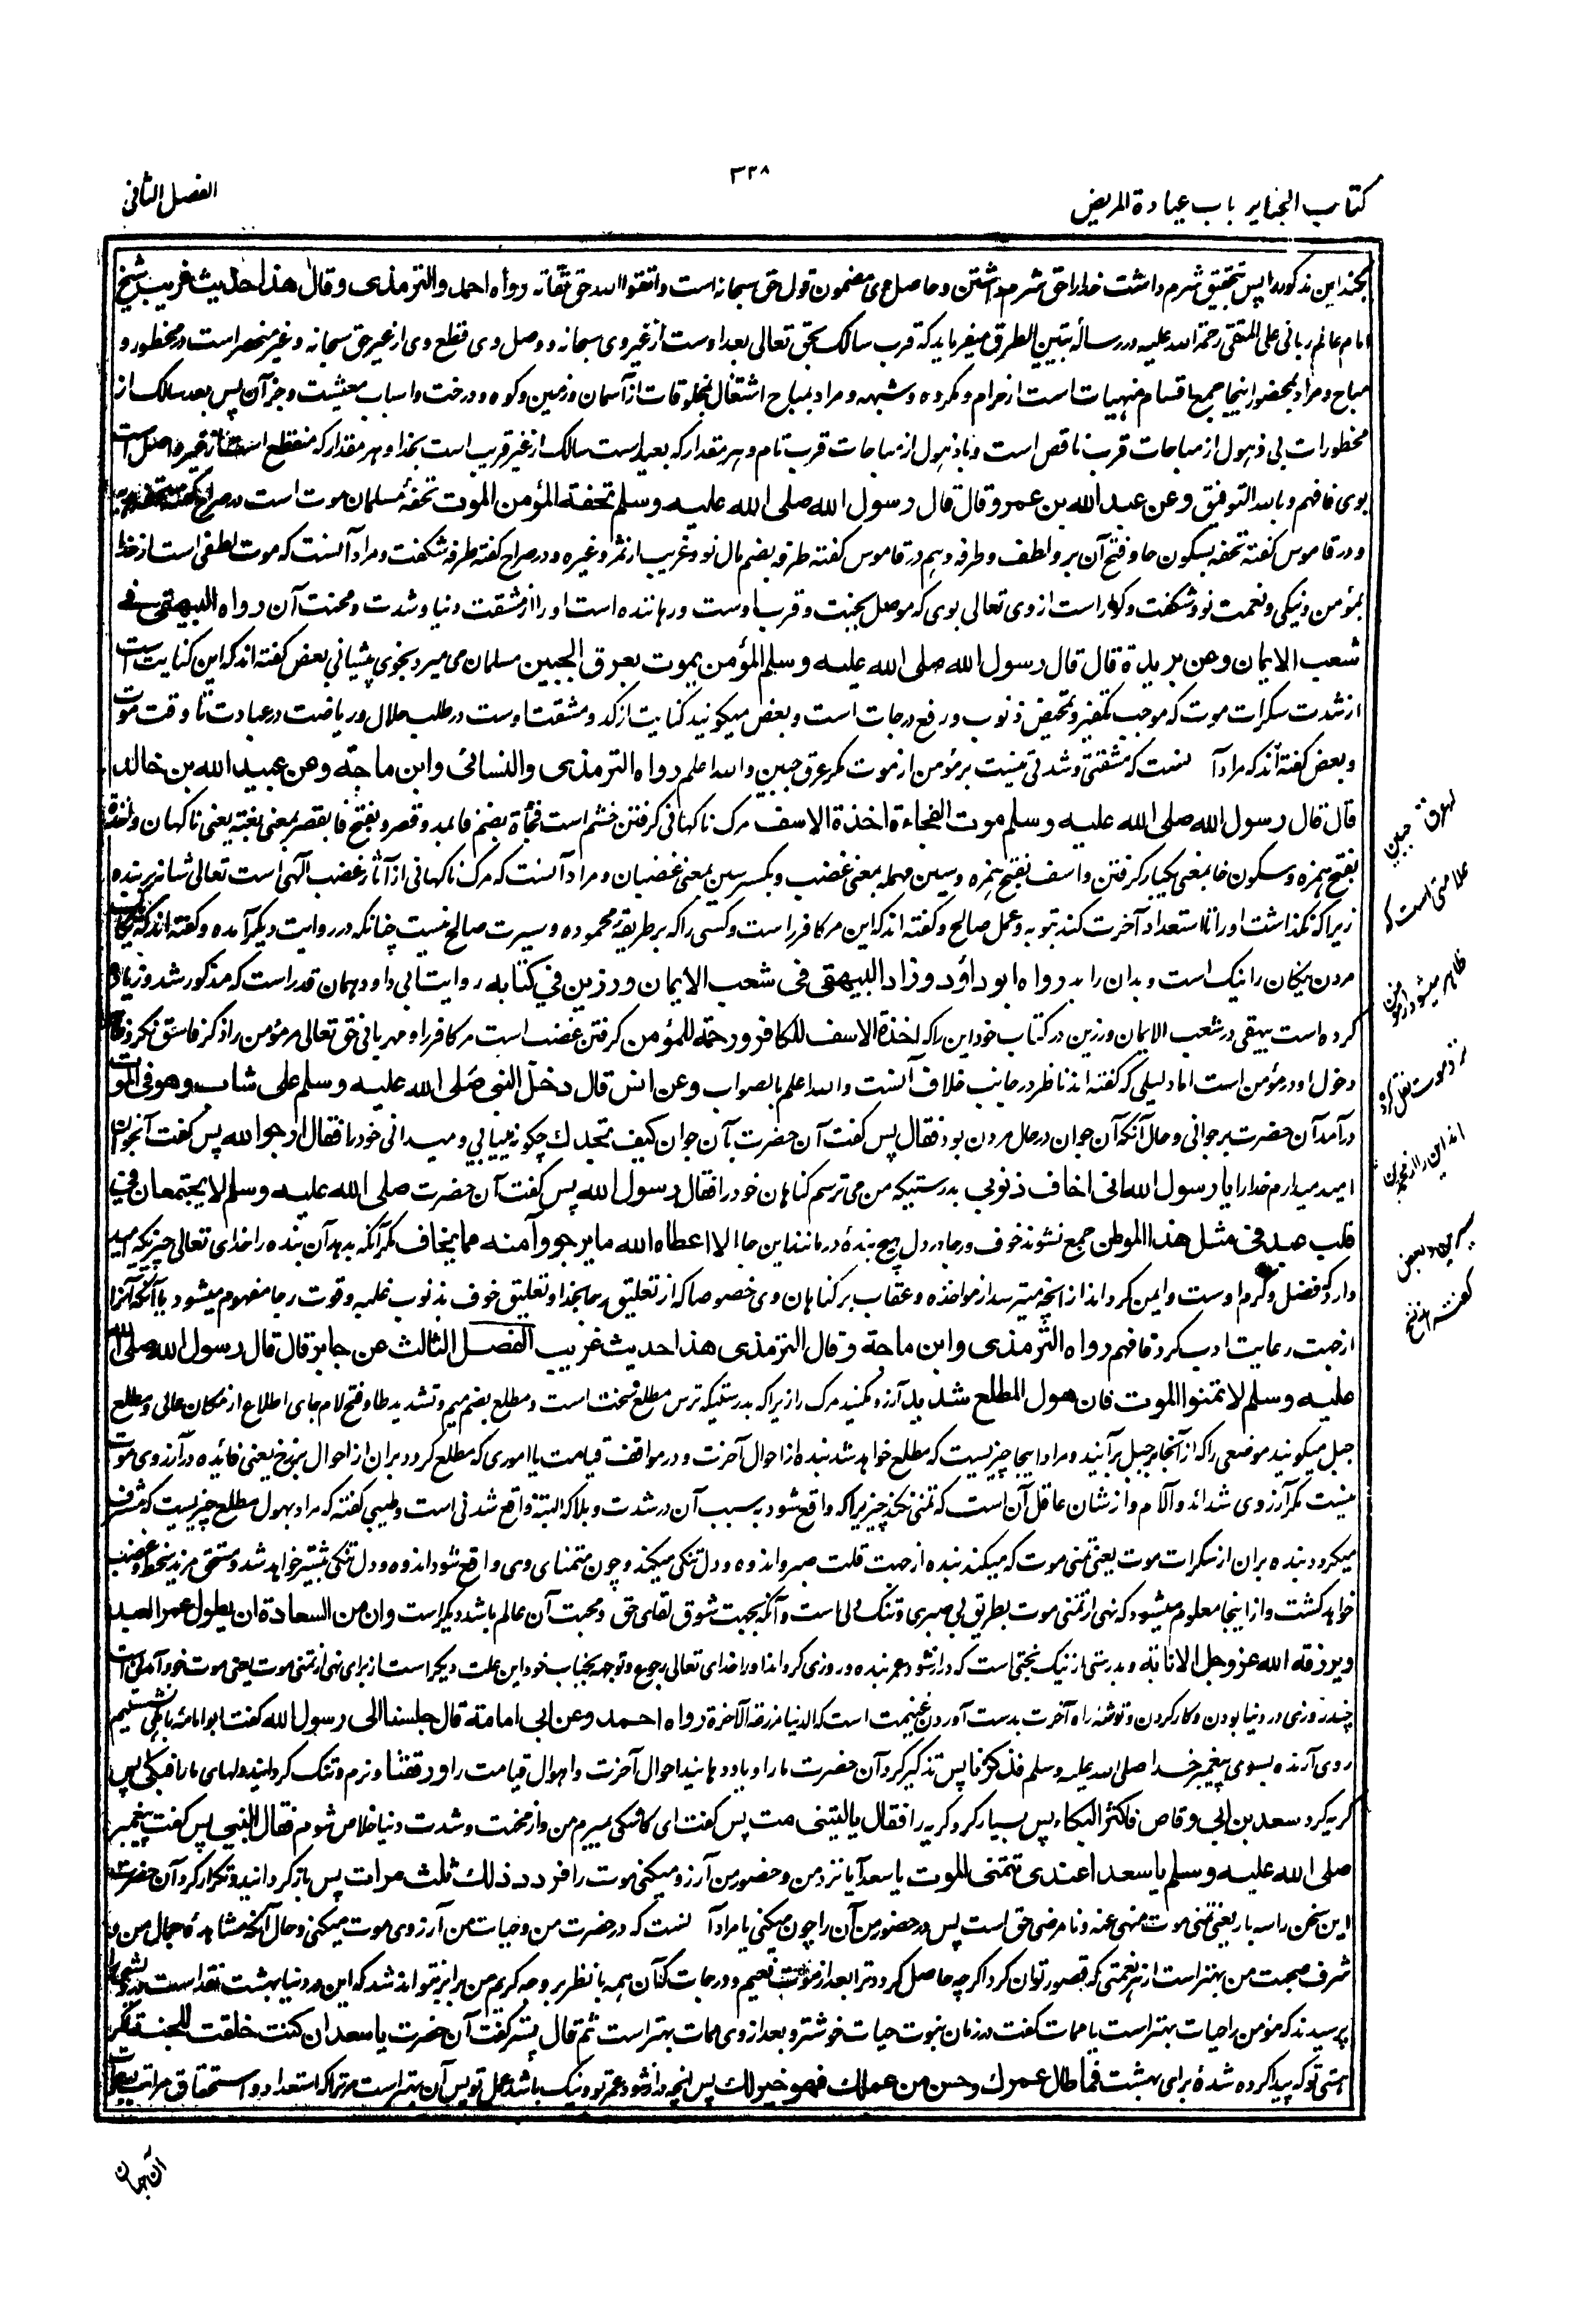 كتاب الجنايز باب عيادة المريض
۳۳۸
الفصل الثانی
بکند این مذکور را پس تحقیق شرم داشت خدا را حق شرم داشتن و حاصل وی مضمون قول حق سبحانه است واتقوا الله حق تقاته رواه احمد والترمذی وقال هذا حدیث غریب شیخ
امام عالم ربانی علی المتقی رحمة الله علیه در رسالۀ تبیین الطرق میفرماید که قرب سالک بحق تعالی بعد اوست از غیر وی سبحانه و وصل وی قطع وی از غیر حق سبحانه و غیر منحصر است در محظور و
مباح و مراد بمحظور اینجا جمیع اقسام منهیات است از حرام و مکروه و شبهه و مراد بمباح اشتغال بمخلوقات از آسمان و زمین و کوه و درخت و اسباب معیشت و جز آن پس بعد سالک از
محظورات بی ذهول از مباحات قرب ناقص است و با ذهول از مباحات قرب تام و بهر مقدار که بعید است سالک از غیر قریب است بخدا و بهر مقدار که منقطع است از غیر واصل است
بوی فافهم و بالله التوفیق وعن عبد الله بن عمرو قال قال رسول الله صلى الله عليه وسلم تحفة المؤمن الموت تحفۀ مسلمان موت است در صراح گفته
و در قاموس گفته تحفه بسکون حا و فتح آن بر و لطف و طرفه و هم در قاموس گفته طرفه بضم مال نو و غریب از ثمر و غیره و در صراح گفته طرفه شگفت و مراد آنست که موت لطفی است از خدا
بمؤمن و نیکی و نعمت نو و شگفت و گوارا است از وی تعالی بوی که موصل بجنت و قرب اوست و رهاننده است او را از مشقت دنیا و شدت و محنت آن رواه البیهقی فی
شعب الایمان وعن بریدة قال قال رسول الله صلى الله عليه وسلم المؤمن یموت بعرق الجبین مسلمان می میرد بخوی پیشانی بعض گفته اند که این کنایت است
از شدت سکرات موت که موجب تکفیر و تمحیض ذنوب و رفع درجات است و بعض میگویند کنایت از کد و مشقت اوست در طلب حلال و ریاضت در عبادت تا وقت موت
و بعض گفته اند که مراد آنست که مشقتی و شدتی نیست بر مؤمن از موت مگر عرق جبین والله اعلم رواه الترمذی والنسائی وابن ماجة وعن عبید الله بن خالد
قال قال رسول الله صلى الله عليه وسلم موت الفجاءة اخذة الاسف مرگ ناگهانی گرفتن خشم است فجأة بضم فا بمد و قصر و بفتح فا بقصر بمعنی بغتة یعنی ناگهان و اخذة
بفتح همزه و سکون خا بمعنی یکبار گرفتن و اسف بفتح همزه و سین مهمله بمعنی غضب و بکسر سین بمعنی غضبان و مراد آنست که مرگ ناگهانی از آثار غضب الهی است تعالی شانه بر بنده
زیرا که نگذاشت او را تا استعداد آخرت کند بتوبه و عمل صالح و گفته اند که این مر کافر راست و کسی را که بر طریقۀ محموده و سیرت صالح نیست چنانکه در روایت دیگر آمده و گفته اند که مرگ مفاجات
مردن نیکان را نیک است و بدان را بد رواه ابو داؤد وزاد البیهقی فی شعب الایمان ورزین فی کتابه روایت ابی داود همان قدر است که مذکور شد و زیاد
کرده است بیهقی در شعب الایمان و رزین در کتاب خود این را که اخذة الاسف للکافر ورحمة للمؤمن گرفتن غضب است مر کافر را و مهربانی حق تعالی مر مؤمن را ذکر فاسق نکرد و ظاهر
دخول او در مؤمن است اما دلیلی که گفته اند ناظر در جانب خلاف آنست والله اعلم بالصواب وعن انس قال دخل النبی صلى الله عليه وسلم علی شاب وهو فی الموت
درآمد آن حضرت بر جوانی و حال آنکه آن جوان در حال مردن بود فقال پس گفت آن حضرت بآن جوان کیف تجدك چگونه مییابی و میدانی خود را فقال ارجو الله پس گفت آنجوان
امید میدارم خدا را یا رسول الله انی اخاف ذنوبی بدرستیکه من می ترسم گناهان خود را فقال رسول الله پس گفت آن حضرت صلى الله عليه وسلم لا یجتمعان فی
قلب عبد فی مثل هذا الموطن جمع نشوند خوف و رجا در دل هیچ بندۀ در مانند این جا الا اعطاه الله ما یرجو وآمنه مما یخاف مگر آنکه بدهد آن بنده را خدای تعالی چیزیکه امید
دارد از فضل و کرم اوست و ایمن گرداند از آنچه میترسد از مواخذه و عقاب بر گناهان وی خصوصا که از تعلیق رجا بخدا و تعلیق خوف بذنوب غلبه و قوت رجا مفهوم میشود یا آنکه آنرا
از جهت رعایت ادب کرد فافهم رواه الترمذی وابن ماجة وقال الترمذی هذا حدیث غریب الفصل الثالث عن جابر قال قال رسول الله صلى الله
علیه وسلم لا تمنوا الموت فان هول المطلع شدید آرزو مکنید مرگ را زیرا که بدرستیکه ترس مطلع سخت است و مطلع بضم میم و تشدید طا و فتح لام جای اطلاع از مکان عالی و مطلع
جبل میگویند موضعی را که از آنجا بر جبل برآیند و مراد اینجا چیزیست که مطلع خواهد شد بنده از احوال آخرت و در مواقف قیامت یا اموری که مطلع گردد بران از احوال برزخ یعنی فائده در آرزوی موت
نیست مگر آرزوی شدائد و آلام و از شان عاقل آن است که تمنی نکند چیزیرا که واقع شود به سبب آن در شدت و بلا که البته واقع شدنی است و طیبی گفته که مراد بهول مطلع چیزیست که مشرف
میگردد بنده بران از سکرات موت یعنی تمنی موت که میکند بنده از جهت قلت صبر و اندوه و دل تنگی میکند و چون متمنای وی واقع شود اندوه و دل تنگی بیشتر خواهد شد و مستحق مزید سخط و غضب
خواهد گشت و از اینجا معلوم میشود که نهی از تمنی موت بطریق بی صبری و تنگ دلی است و آنکه بجهت شوق لقای حق و محبت آن عالم باشد دیگر است وان من السعادة ان یطول عمر العبد
ویرزقه الله عز وجل الانابة و بدرستی از نیک بختی است که دراز شود عمر بنده و روزی گرداند او را خدای تعالی رجوع و توجه بجناب خود این علت دیگر است از برای نهی از تمنی موت یعنی موت خود آمدنی است
چند روزی در دنیا بودن و کار کردن و توشۀ راه آخرت بدست آوردن غنیمت است که الدنیا مزرعة الآخرة رواه احمد وعن ابی امامة قال جلسنا الی رسول الله گفت ابو امامه باهلی نشستیم
روی آرنده بسوی پیغمبر خدا صلی الله علیه وسلم فذکرنا پس تذکیر کرد آن حضرت ما را و یاد دهانید احوال آخرت و اهوال قیامت را ورققنا و نرم و تنک گردانید دلهای ما را فبکی پس
گریه کرد سعد بن ابی وقاص فاکثر البکاء پس بسیار کرد گریه را فقال یا لیتنی مت پس گفت ای کاشکی بمیرم من و از محنت و شدت دنیا خلاص شوم فقال النبی پس گفت پیغمبر
صلى الله عليه وسلم یا سعد اعندی تتمنی الموت یا سعد آیا نزد من و حضور من آرزو میکنی موت را فردد ذلك ثلث مرات پس باز گردانید و تکرار کرد آن حضرت
این سخن را سه بار یعنی تمنی موت منهی عنه و نامرضی حق است پس در حضور من آن را چون میکنی یا مراد آنست که در حضرت من و حیات من آرزوی موت میکنی و حال آنکه مشاهدۀ جمال من و
شرف صحبت من بهتر است از هر نعمتی که تصور توان کرد اگر چه حاصل گردد ترا بعد از موت نعیم و درجات که آن همه با نظر بر وجه کریم من برابر نتواند شد که این در دنیا بهشت نقد است
پرسیدند که مؤمن را حیات بهتر است یا ممات گفت در زمان نبوت حیات خوشتر و بعد از وی ممات بهتر است ثم قال پستر گفت آن حضرت یا سعد ان کنت خلقت للجنة اگر
هستی تو که پیدا کرده شدۀ برای بهشت فما طال عمرك وحسن من عملك فهو خیر لك پس آنچه دراز شود عمر تو و نیک باشد عمل تو پس آن بهتر است مر ترا که استعداد و استحقاق مراتب
عرق جبین
علامتی است که
ظاهر میشود از مؤمن
نزد موت نقل کرده
اند این را از محمد بن
سیرین و بعض
گفته اند
آن جهان